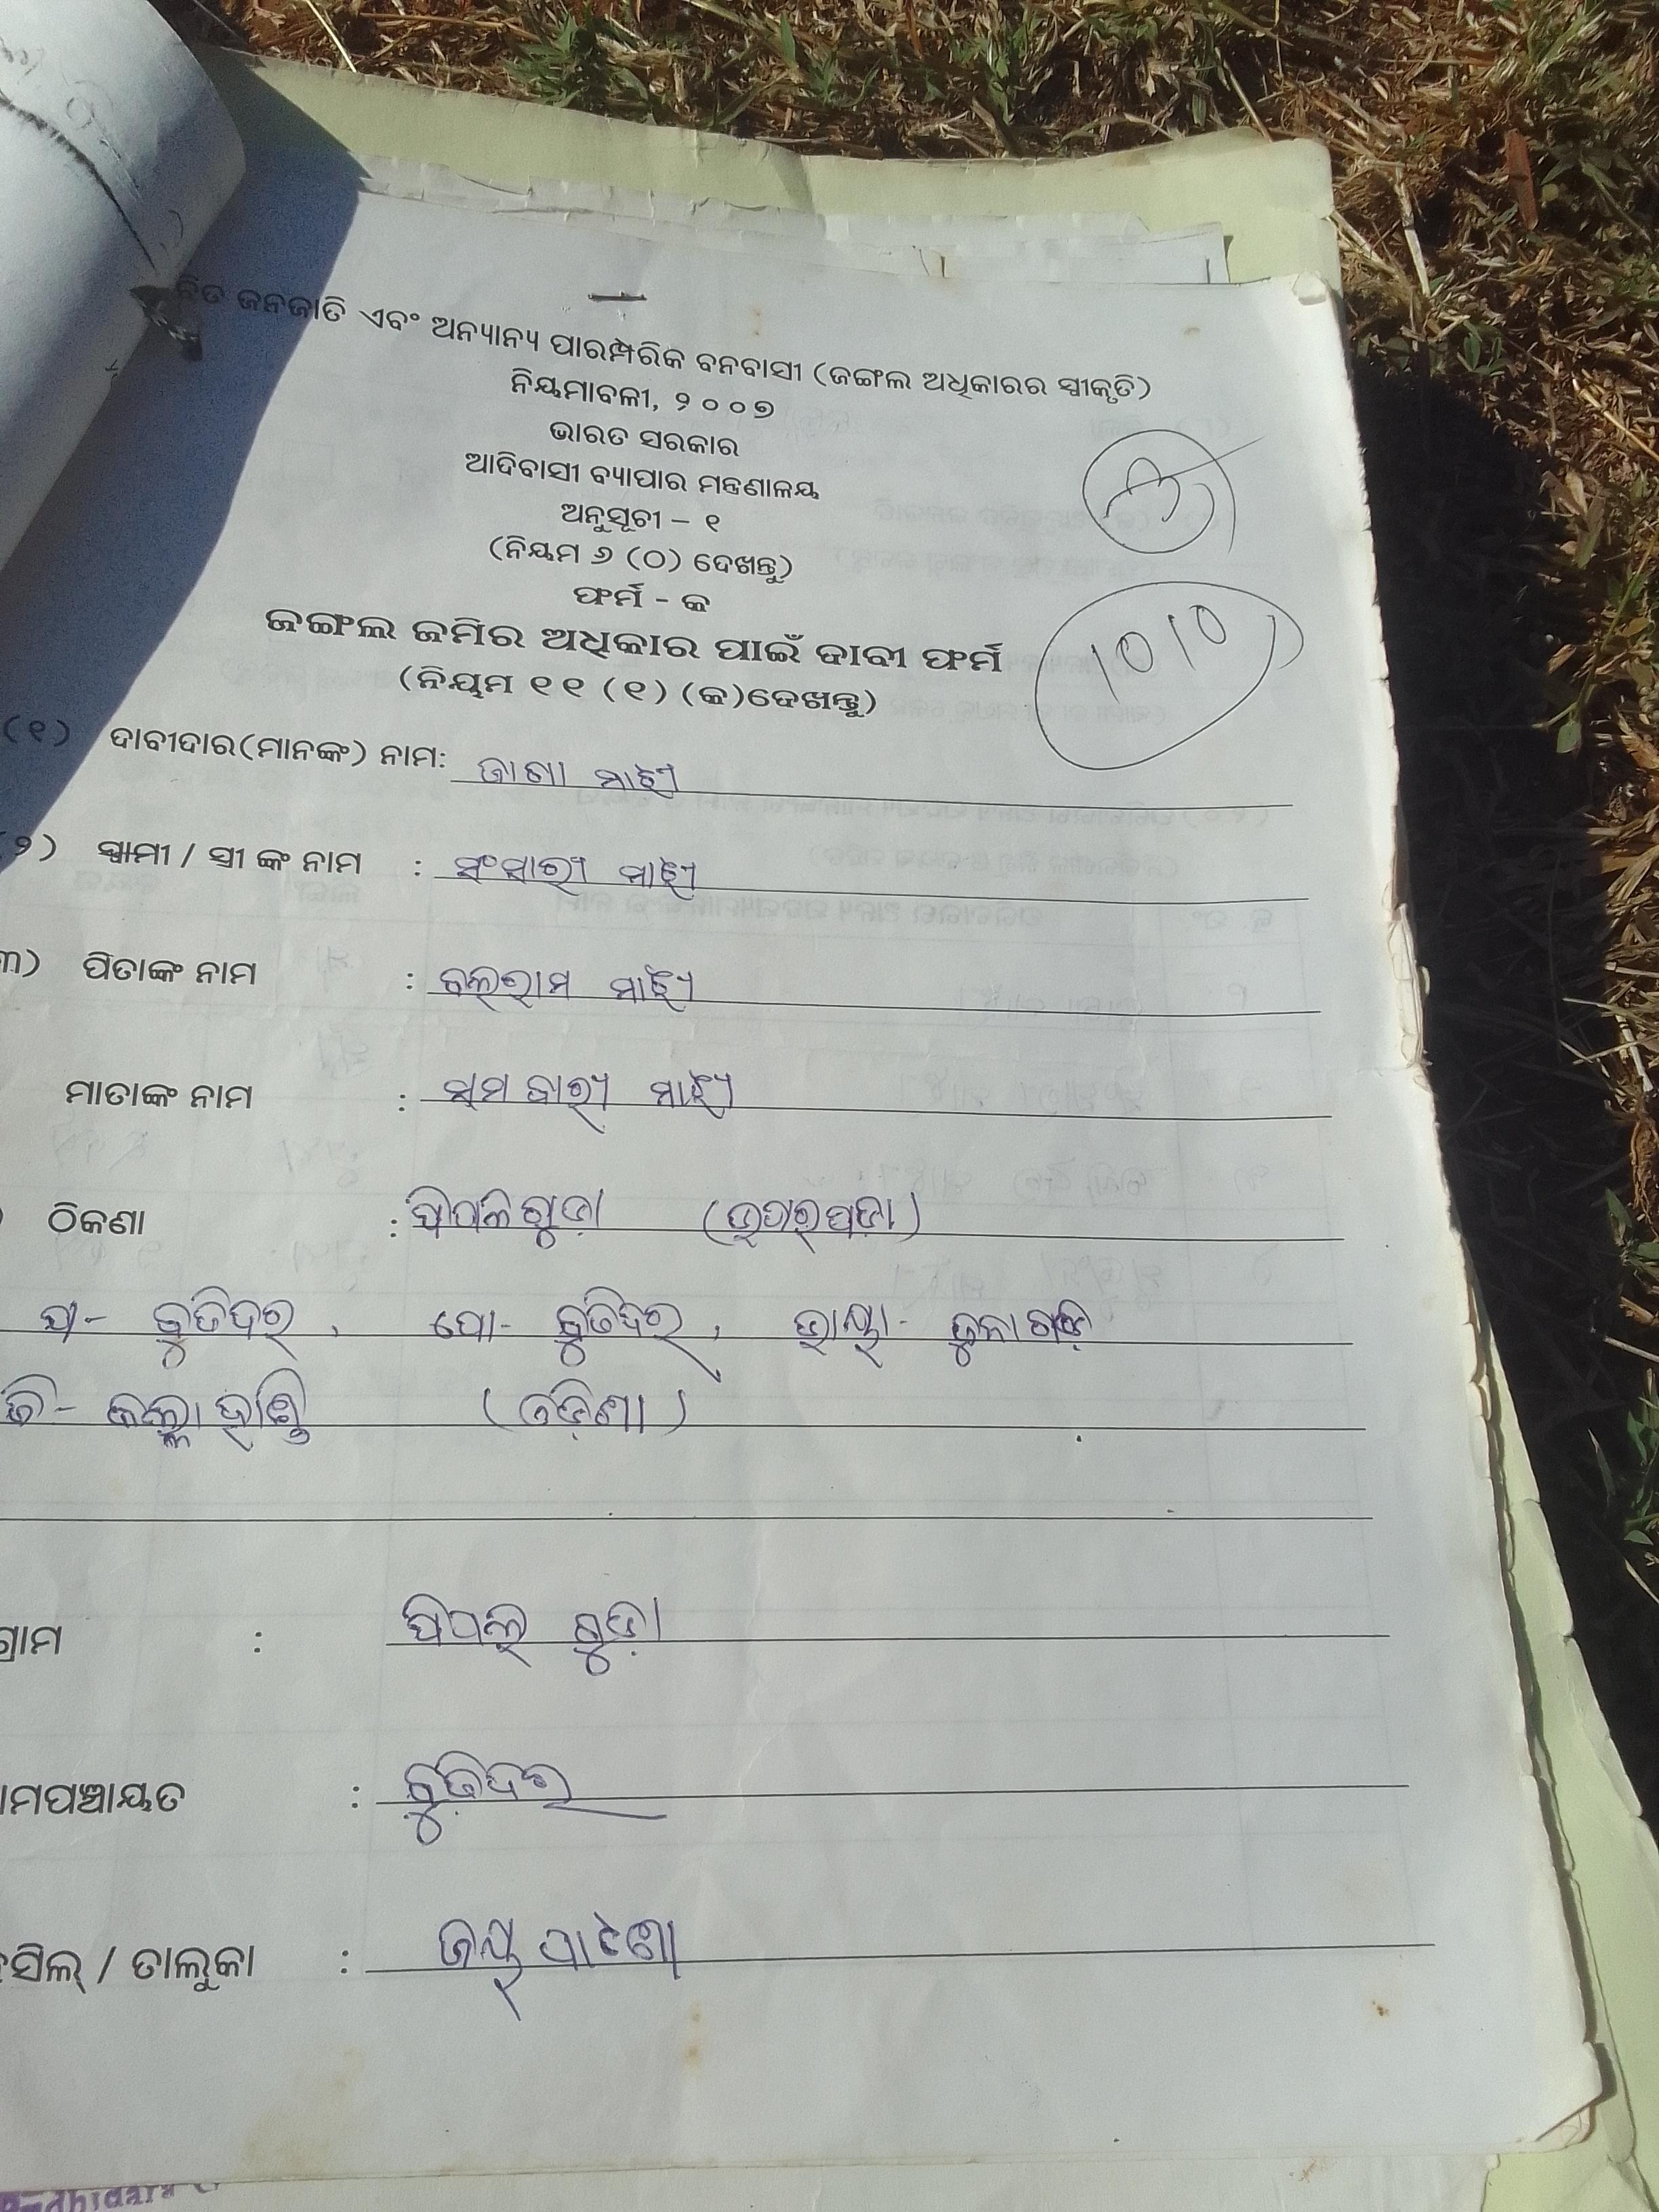 ଜନଜାତି ଏବଂ ଅନ୍ୟାନ୍ୟ ପାରମ୍ପରିକ ବନବାସୀ (ଜଙ୍ଗଲ ଅଧିକାରର ସ୍ୱୀକୃତି)
ନିୟମାବଳୀ, ୨୦୦୭
ଭାରତ ସରକାର
ଆଦିବାସୀ ବ୍ୟାପାର ମନ୍ତ୍ରଣାଳୟ
ଅନୁସୂଚୀ – ୧
(ନିୟମ ୬ (୦) ଦେଖନ୍ତୁ)
ଫର୍ମ - କ
ଜଙ୍ଗଲ ଜମିର ଅଧିକାର ପାଇଁ ଦାବୀ ଫର୍ମ
(ନିୟମ ୧୧ (୧) (କ)ଦେଖନ୍ତୁ)
(୧) ଦାବୀଦାର(ମାନଙ୍କ) ନାମ: ଜାଗା ମାଝୀ
୨) ସ୍ୱାମୀ / ସ୍ତ୍ରୀ ଙ୍କ ନାମ : ସଂସାରୀ ମାଝୀ
୩) ପିତାଙ୍କ ନାମ : ବଲରାମ ମାଝୀ
ମାତାଙ୍କ ନାମ : ସମବାରୀ ମାଝୀ
ଠିକଣା : ପିପଳଗୁଡ଼ା
ଗ୍ରା- ବୁଢିଦର, ପୋ- ବୁଢିଦର, ଭାୟା- ଜୁନାଗଡ଼
ଜି- କଳାହାଣ୍ଡି (ଓଡ଼ିଶା)
ଗ୍ରାମ : ପିପଲ ଗୁଡ଼ା
ପଞ୍ଚାୟତ : ବୁଢ଼ିଦର
ତାଲୁକା : ଜୟପାଟଣା